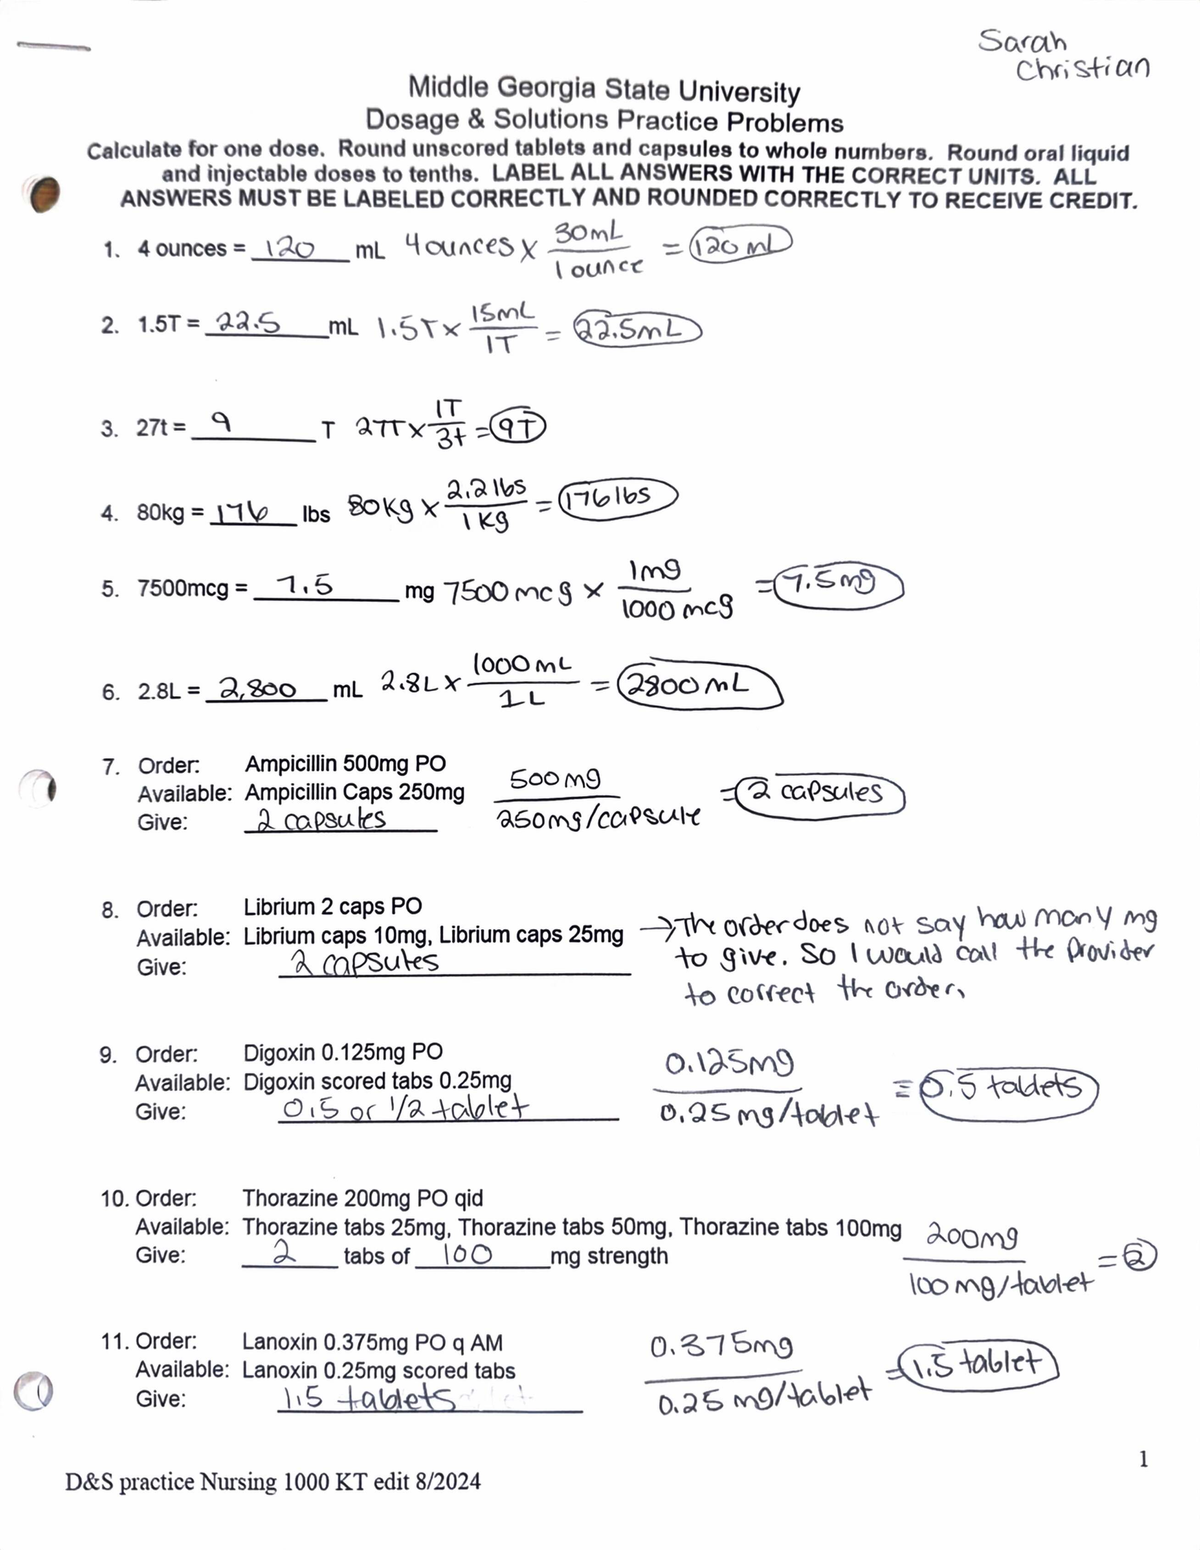 Sarah
Christian
Middle Georgia State University
Dosage & Solutions Practice Problems
Calculate for one dose. Round unscored tablets and capsules to whole numbers. Round oral liquid
and injectable doses to tenths. LABEL ALL ANSWERS WITH THE CORRECT UNITS. ALL
ANSWERS MUST BE LABELED CORRECTLY AND ROUNDED CORRECTLY TO RECEIVE CREDIT.
1. 4 ounces = 120 mL 4 ounces x 30mL / 1 ounce = 120 mL
2. 1.5T = 22.5 mL 1.5T x 15mL / 1T = 22.5mL
3. 27t = 9 T 27T x 1T / 3t = 9T
4. 80kg = 176 lbs 80kg x 2.2 lbs / 1 kg = 176 lbs
5. 7500mcg = 7.5 mg 7500 mcg x 1mg / 1000 mcg = 7.5mg
6. 2.8L = 2,800 mL 2.8L x 1000mL / 1L = 2800mL
7. Order: Ampicillin 500mg PO
Available: Ampicillin Caps 250mg
Give: 2 capsules
500mg / 250mg/capsule = 2 capsules
8. Order: Librium 2 caps PO
Available: Librium caps 10mg, Librium caps 25mg
Give: 2 capsules
→ The order does not say how many mg
to give. So I would call the Provider
to correct the order.
9. Order: Digoxin 0.125mg PO
Available: Digoxin scored tabs 0.25mg
Give: 0.5 or 1/2 tablet
0.125mg / 0.25mg/tablet = 0.5 tablets
10. Order: Thorazine 200mg PO qid
Available: Thorazine tabs 25mg, Thorazine tabs 50mg, Thorazine tabs 100mg
Give: 2 tabs of 100 mg strength
200mg / 100mg/tablet = 2
11. Order: Lanoxin 0.375mg PO q AM
Available: Lanoxin 0.25mg scored tabs
Give: 1.5 tablets
0.375mg / 0.25 mg/tablet = 1.5 tablet
1
D&S practice Nursing 1000 KT edit 8/2024